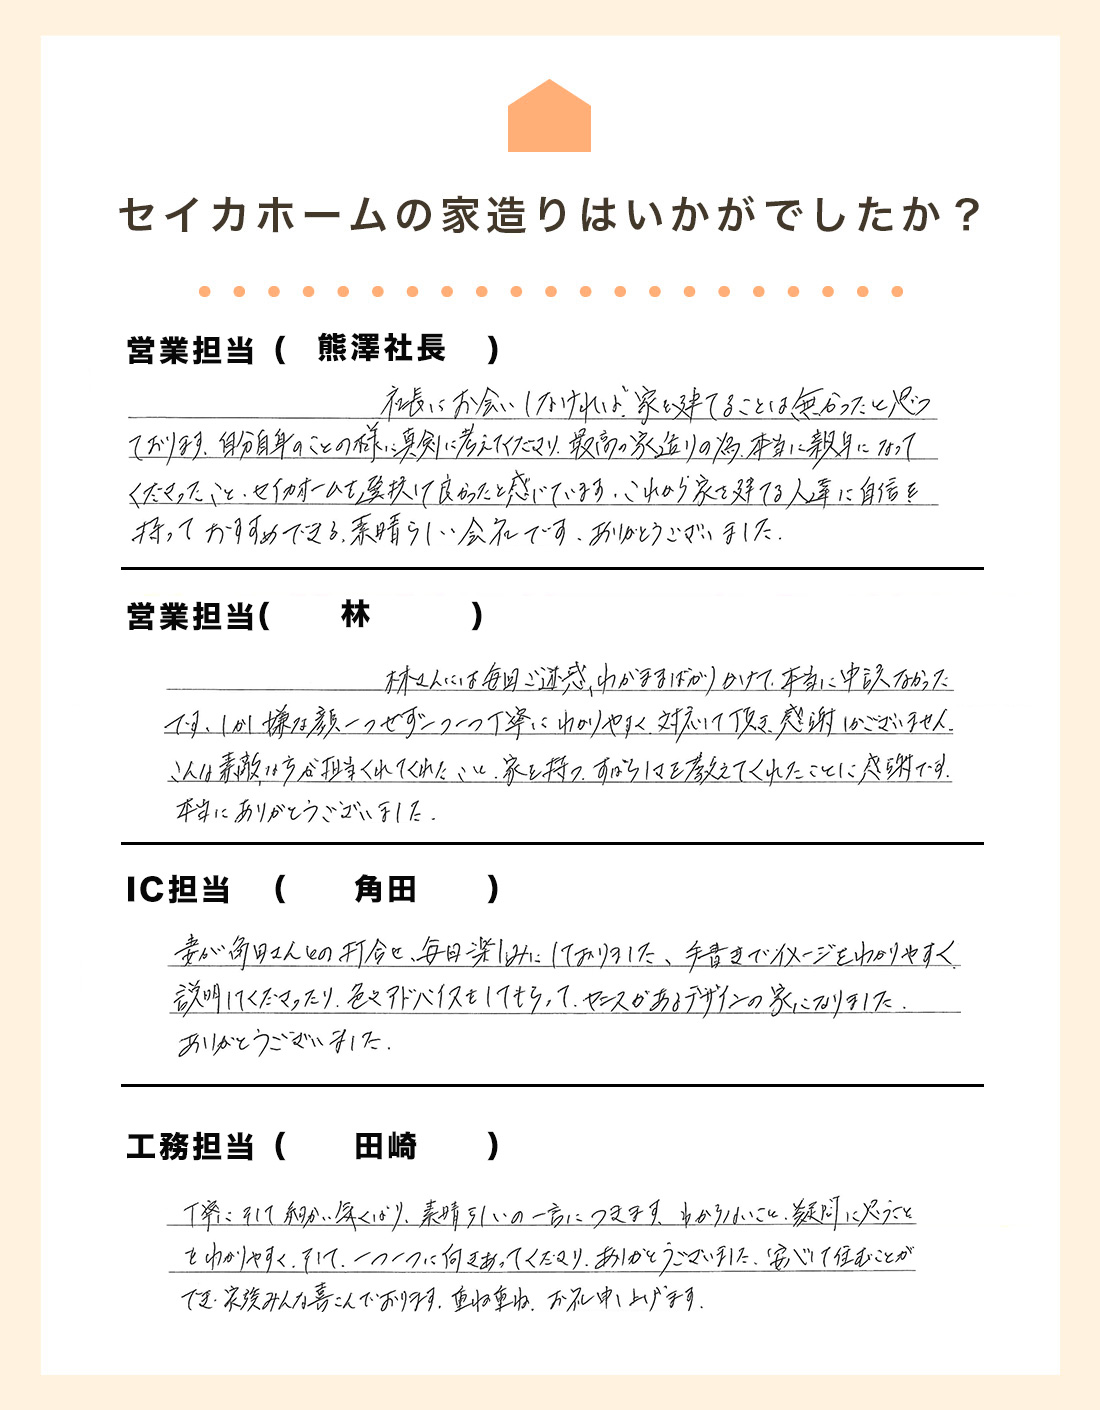 セイカホームの家造りはいかがでしたか？
営業担当 ( 熊澤社長 )
社長にお会いしなければ、家を建てることは無かったと思っ
ております。自分自身のことの様に真剣に考えてくださり、最高の家造りの為、本当に親身になって
くださったこと、セイカホームを選択して良かったと感じています。これから家を建てる人達に自信を
持っておすすめできる、素晴らしい会社です。ありがとうございました。
営業担当( 林 )
林さんには毎回ご迷惑、わがままばかりかけて、本当に申訳なかった
です。しかし嫌な顔一つせず一つ一つ丁寧にわかりやすく対応して頂き、感謝しかございません。
こんな素敵な方が担当してくれたこと、家を持つ、すばらしさを教えてくれたことに感謝です。
本当にありがとうございました。
IC担当 ( 角田 )
妻が角田さんとの打合せ、毎日楽しみにしておりました、手書きでイメージをわかりやすく
説明してくださったり、色々アドバイスをしてもらって、センスがあるデザインの家になりました。
ありがとうございました。
工務担当 ( 田崎 )
丁寧にそして細かい気くばり、素晴らしいの一言につきます。わからないこと、疑問に思うこと
をわかりやすく、そして、一つ一つに向きあってくださり、ありがとうございました。安心して住むことが
でき、家族みんな喜こんでおります。重ね重ね、お礼申し上げます。